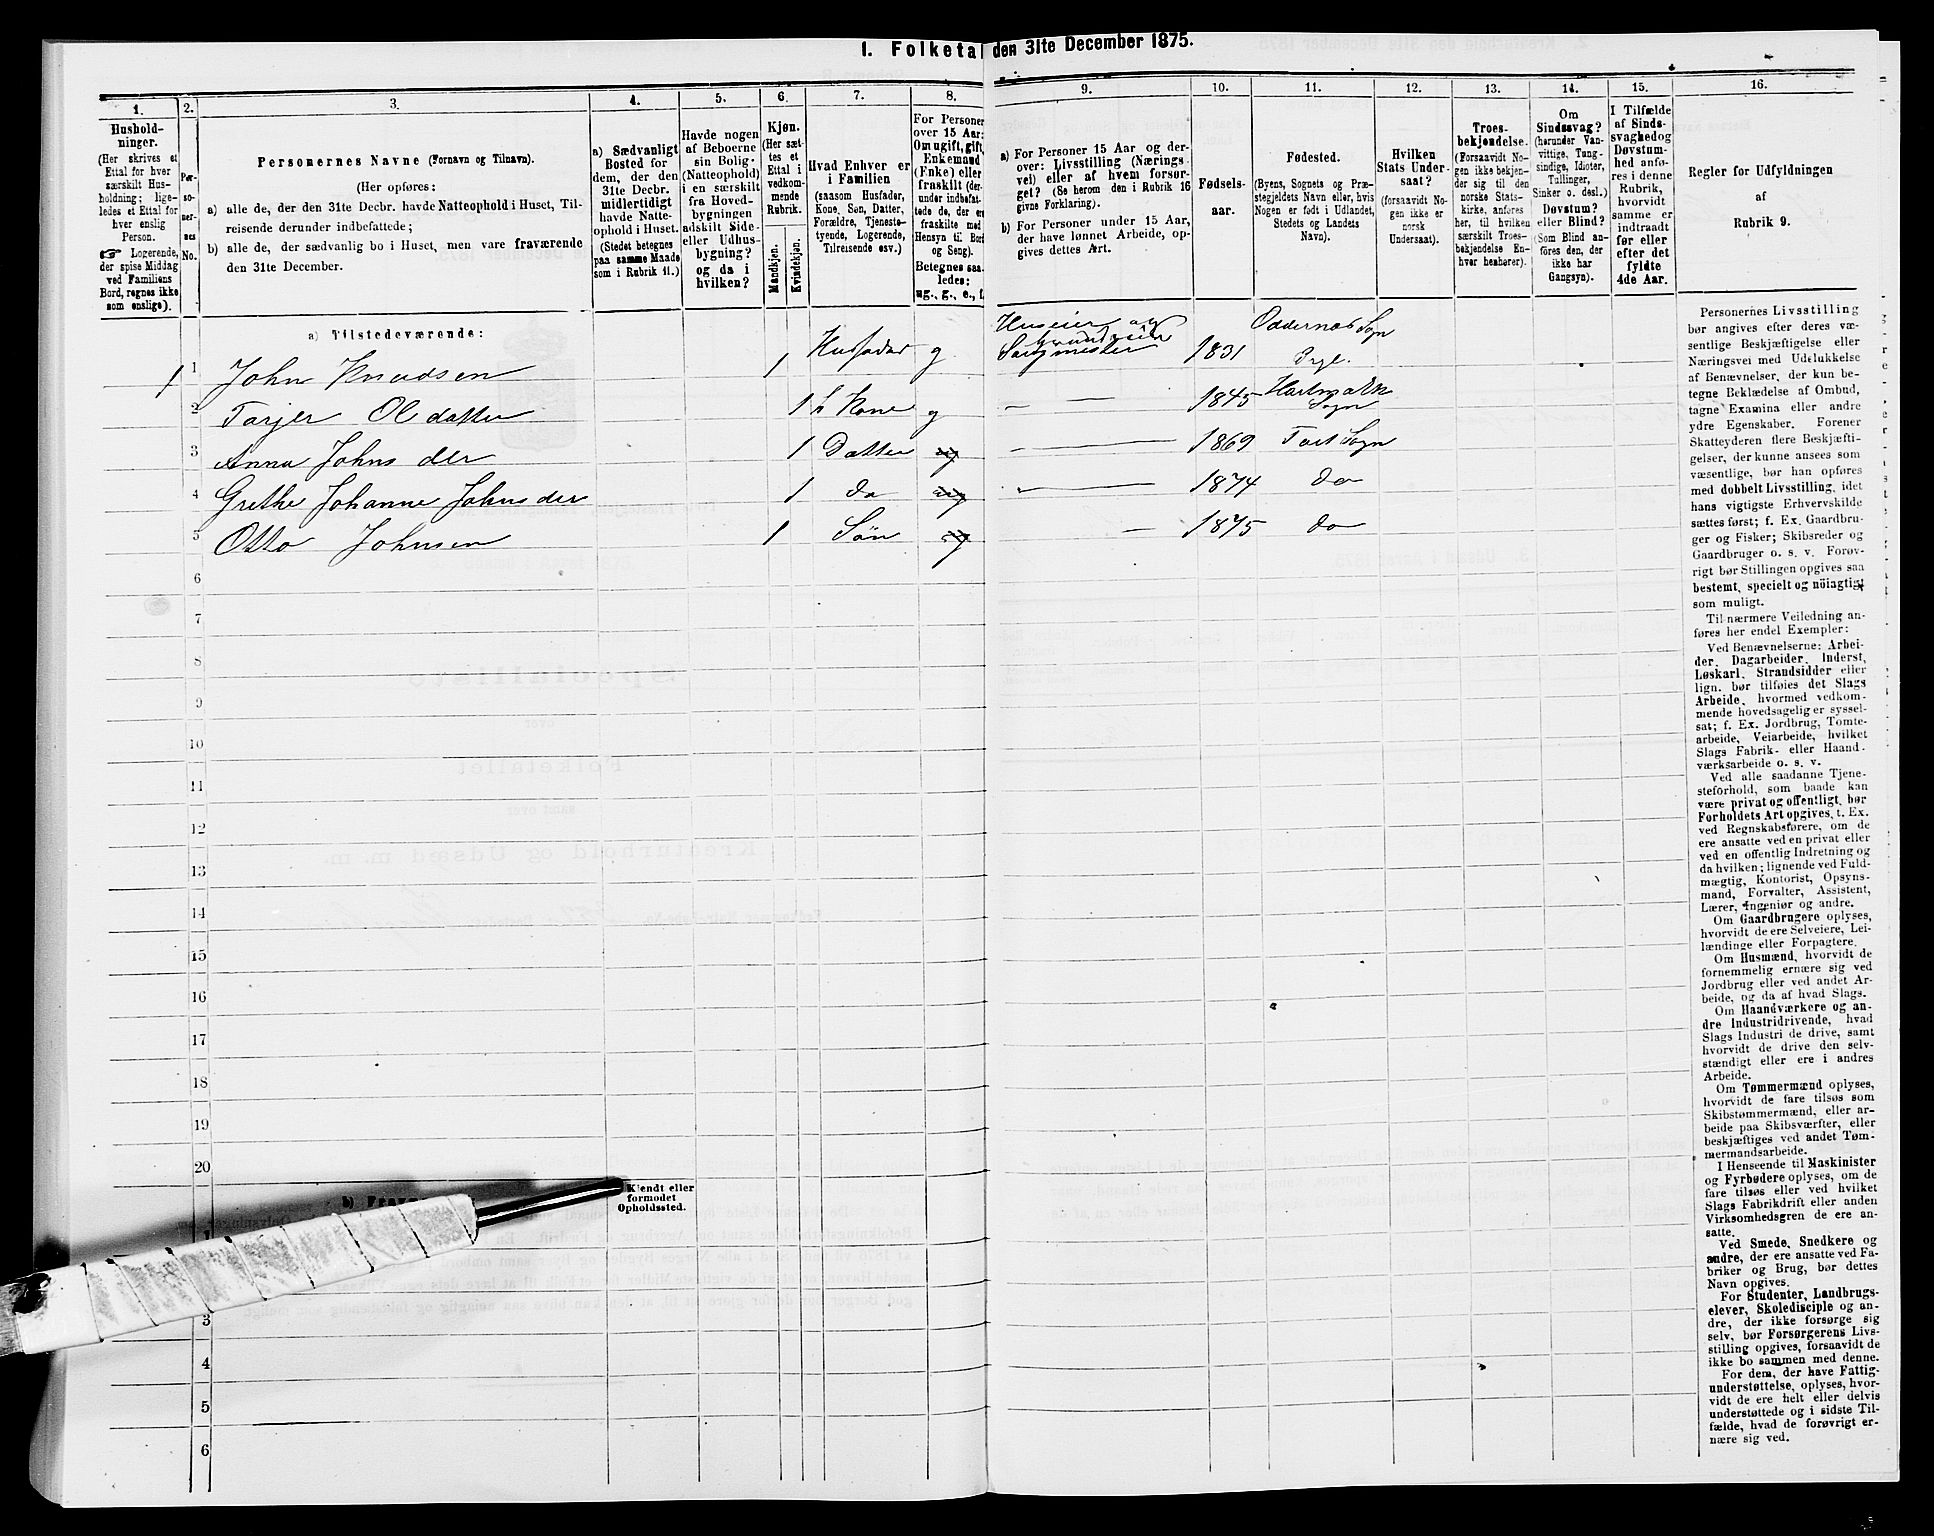 1. Folketa den 31te December 1875.
1.
2.
3.
4.
5.
6.
7.
8.
9.
10.
11.
12.
13.
14.
15.
16.
Hushold-
ninger.
(Her skrives et
Ettal for hver
særskilt Hus-
holdning; lige-
ledes et Ettal for
hver enslig
Person.
☞ Logerende,
der spise Middag
ved Familiens
Bord, regnes ikke
som enslige).
Per-
so-
ner-
nes
No.
Personernes Navne (Fornavn og Tilnavn).
(Her opføres:
a) alle de, der den 31te Decbr. havde Natteophold i Huset, Til-
reisende derunder indbefattede;
b) alle de, der sædvanlig bo i Huset, men vare fraværende
den 31te December.
a) Sædvanligt
Bosted for
dem, der den
31te Decbr.
midlertidigt
havde Natte-
ophold i Huset.
(Stedet betegnes
paa samme Maade
som i Rubrik 11.)
Havde nogen
af Beboerne
sin Bolig
(Natteophold)
i en særskilt
fra Hoved-
bygningen
adskilt Side-
eller Udhus-
bygning?
og da i
hvilken?
Kjøn.
(Her sæt-
tes et
Ettal i
vedkom-
mende
Rubrik.
Mandkjøn.
Kvindekjøn.
Hvad Enhver er
i Familien
(saasom Husfader,
Kone, Søn, Datter,
Forældre, Tjeneste-
tyende, Logerende,
Tilreisende osv.)
For Personer
over 15 Aar:
Om ugift, gift,
Enkemand
(Enke) eller
fraskilt (der-
under indbefat-
tede de, der er
fraskilte med
Hensyn til Bord
og Seng).
Betegnes saa-
ledes:
ug., g., e., f.
a) For Personer 15 Aar og der-
over: Livsstilling (Nærings-
vei) eller af hvem forsør-
get? (Se herom den i Rubrik 16
givne Forklaring).
b) For Personer under 15 Aar,
der have lønnet Arbeide, op-
gives dettes Art.
Fødsels-
aar.
Fødested.
(Byens, Sognets og Præ-
stegjeldets Navn eller, hvis
Nogen er født i Udlandet,
Stedets og Landets
Navn).
Hvilken
Stats Under-
saat?
(forsaavidt No-
gen ikke er
norsk
Undersaat).
Troes-
bekjendelse.
(Forsaavidt No-
gen ikke bekjen-
der sig til den
norske Stats-
kirke, anføres
her, til hvilken
særskilt Troes-
bekjendelse En-
hver henhører).
Om
Sindssvag?
(herunder Van-
vittige, Tung-
sindige, Idioter,
Tullinger,
Sinker o. desl.)
Døvstum?
eller Blind?
(Som Blind an-
føres den, der
ikke har
Gangsyn).
I Tilfælde
af Sinds-
svaghed og
Døvstum-
hed anfø-
res i denne
Rubrik,
hvorvidt
samme er
indtraadt
før eller
efter det
fyldte
4de Aar.
Regler for Udfyldningen
af
Rubrik 9.
a) Tilstedeværende:
1 1 John Knudsen 1 Husfader g Huseier og Grundeier Sagmester 1831 Oddernæs Sogn Prgl.
2 Tarjer Olsdatter 1 h Kone g — — 1845 Hartmark Sogn
3 Anna Johnsder 1 Datter ug — — 1869 Tveit Sogn
4 Grethe Johanne Johnsder 1 do ug — — 1874 do
5 Otto Johnsen 1 Søn ug — 1875 do
6
7
8
9
10
11
12
13
14
15
16
17
18
19
20
b) Frav
Kjendt eller
formodet
Opholdssted.
1
3
4
5
6
Personernes Livsstilling
bør angives efter deres væ-
sentlige Beskjæftigelse eller
Næringsvei med Udelukkelse
af Benævnelser, der kun be-
tegne Beklædelse af Ombud,
tagne Examina eller andre
ydre Egenskaber. Forener
Skatteyderen flere Beskjæfti-
gelser, der kunne ansees som
væsentlige, bør han opføres
med dobbelt Livsstilling, idet
hans vigtigste Erhvervskilde
sættes først; f. Ex. Gaardbru-
ger og Fisker; Skibsreder og
Gaardbruger o. s. v. Forøv-
rigt bør Stillingen opgives saa
bestemt, specielt og nöiagtigt
som muligt.
Til nærmere Veiledning an-
føres her endel Exempler:
Ved Benævnelserne: Arbei-
der, Dagarbeider, Inderst,
Løskarl, Strandsidder eller
lign. bør tilføies det Slags
Arbeide, hvormed vedkom-
mende hovedsagelig er syssel-
sat; f. Ex. Jordbrug, Tomte-
arbeide, Veiarbeide, hvilket
Slags Fabrik- eller Haand-
værksarbeide o. s. v.
Ved alle saadanne Tjene-
steforhold, som baade kan
være privat og offentligt, bør
Forholdets Art opgives, t. Ex.
ved Regnskabsførere, om de
ere ansatte ved en privat eller
ved en offentlig Indretning og
da hvilken; lignende ved Fuld-
mægtig, Kontorist, Opsyns-
mand, Forvalter, Assistent,
Lærer, Ingeniør og andre.
Om Gaardbrugere oplyses,
hvorvidt de ere Selveiere, Lei-
lændinge eller Forpagtere.
Om Husmænd, hvorvidt de
fornemmelig ernære sig ved
Jordbrug eller ved andet Ar-
beide, og da af hvad Slags.
Om Haandværkere og an-
dre Industridrivende, hvad
Slags Industri de drive, samt
hvorvidt de drive den selv-
stændigt eller ere i andres
Arbeide.
Om Tømmermænd oplyses,
hvorvidt de fare tilsøs som
Skibstømmermænd, eller ar-
beide paa Skibsværfter, eller
beskjæftiges ved andet Tøm-
mermandsarbeide.
I Henseende til Maskinister
og Fyrbødere oplyses, om de
fare tilsøs eller ved hvilket
Slags Fabrikdrift eller anden
Virksomhedsgren de ere an-
satte.
Ved Smede, Snedkere og
andre, der ere ansatte ved Fa-
briker og Brug, bør dettes
Navn opgives.
For Studenter, Landbrugs-
elever, Skoledisciple og an-
dre, der ikke forsørge sig
selv, bør Forsørgerens Livs-
stilling opgives, forsaavidt de
ikke bo sammen med denne.
For dem, der have Fattig-
understøttelse, oplyses, hvor-
vidt de ere helt eller delvis
understøttede og i sidste Til-
fælde, hvad de forøvrigt er-
nære sig ved.